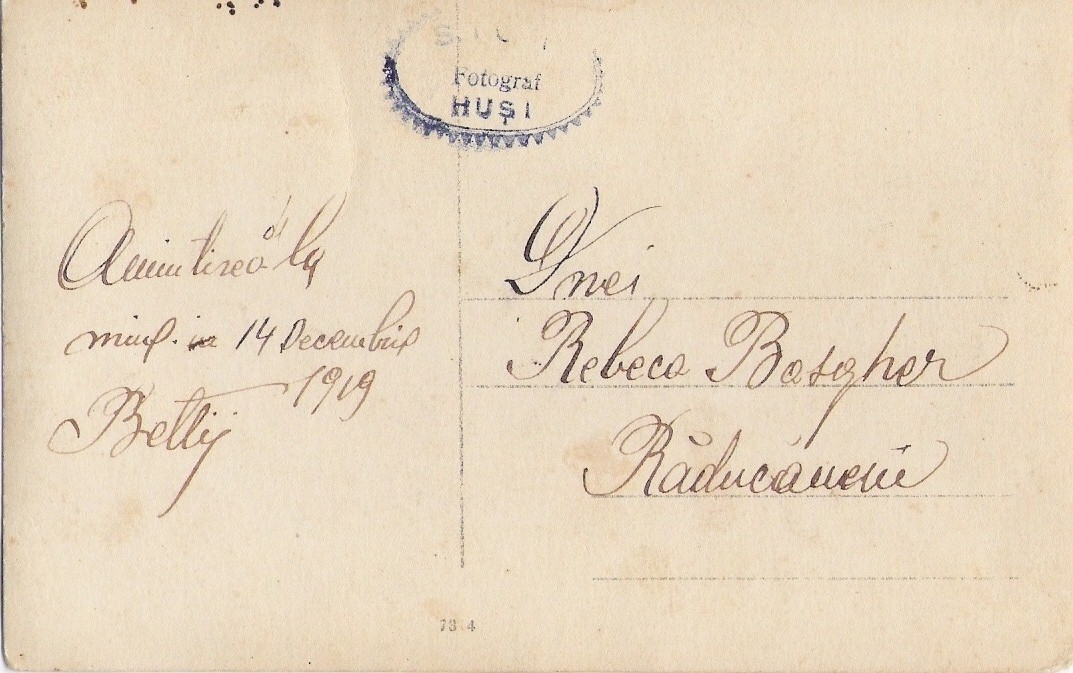 Fotograf
HUȘI
Amintirea la
mine in 14 Decembrie
1919
Betty
Dnei
Rebeca Basgher
Răducăneni
73 4